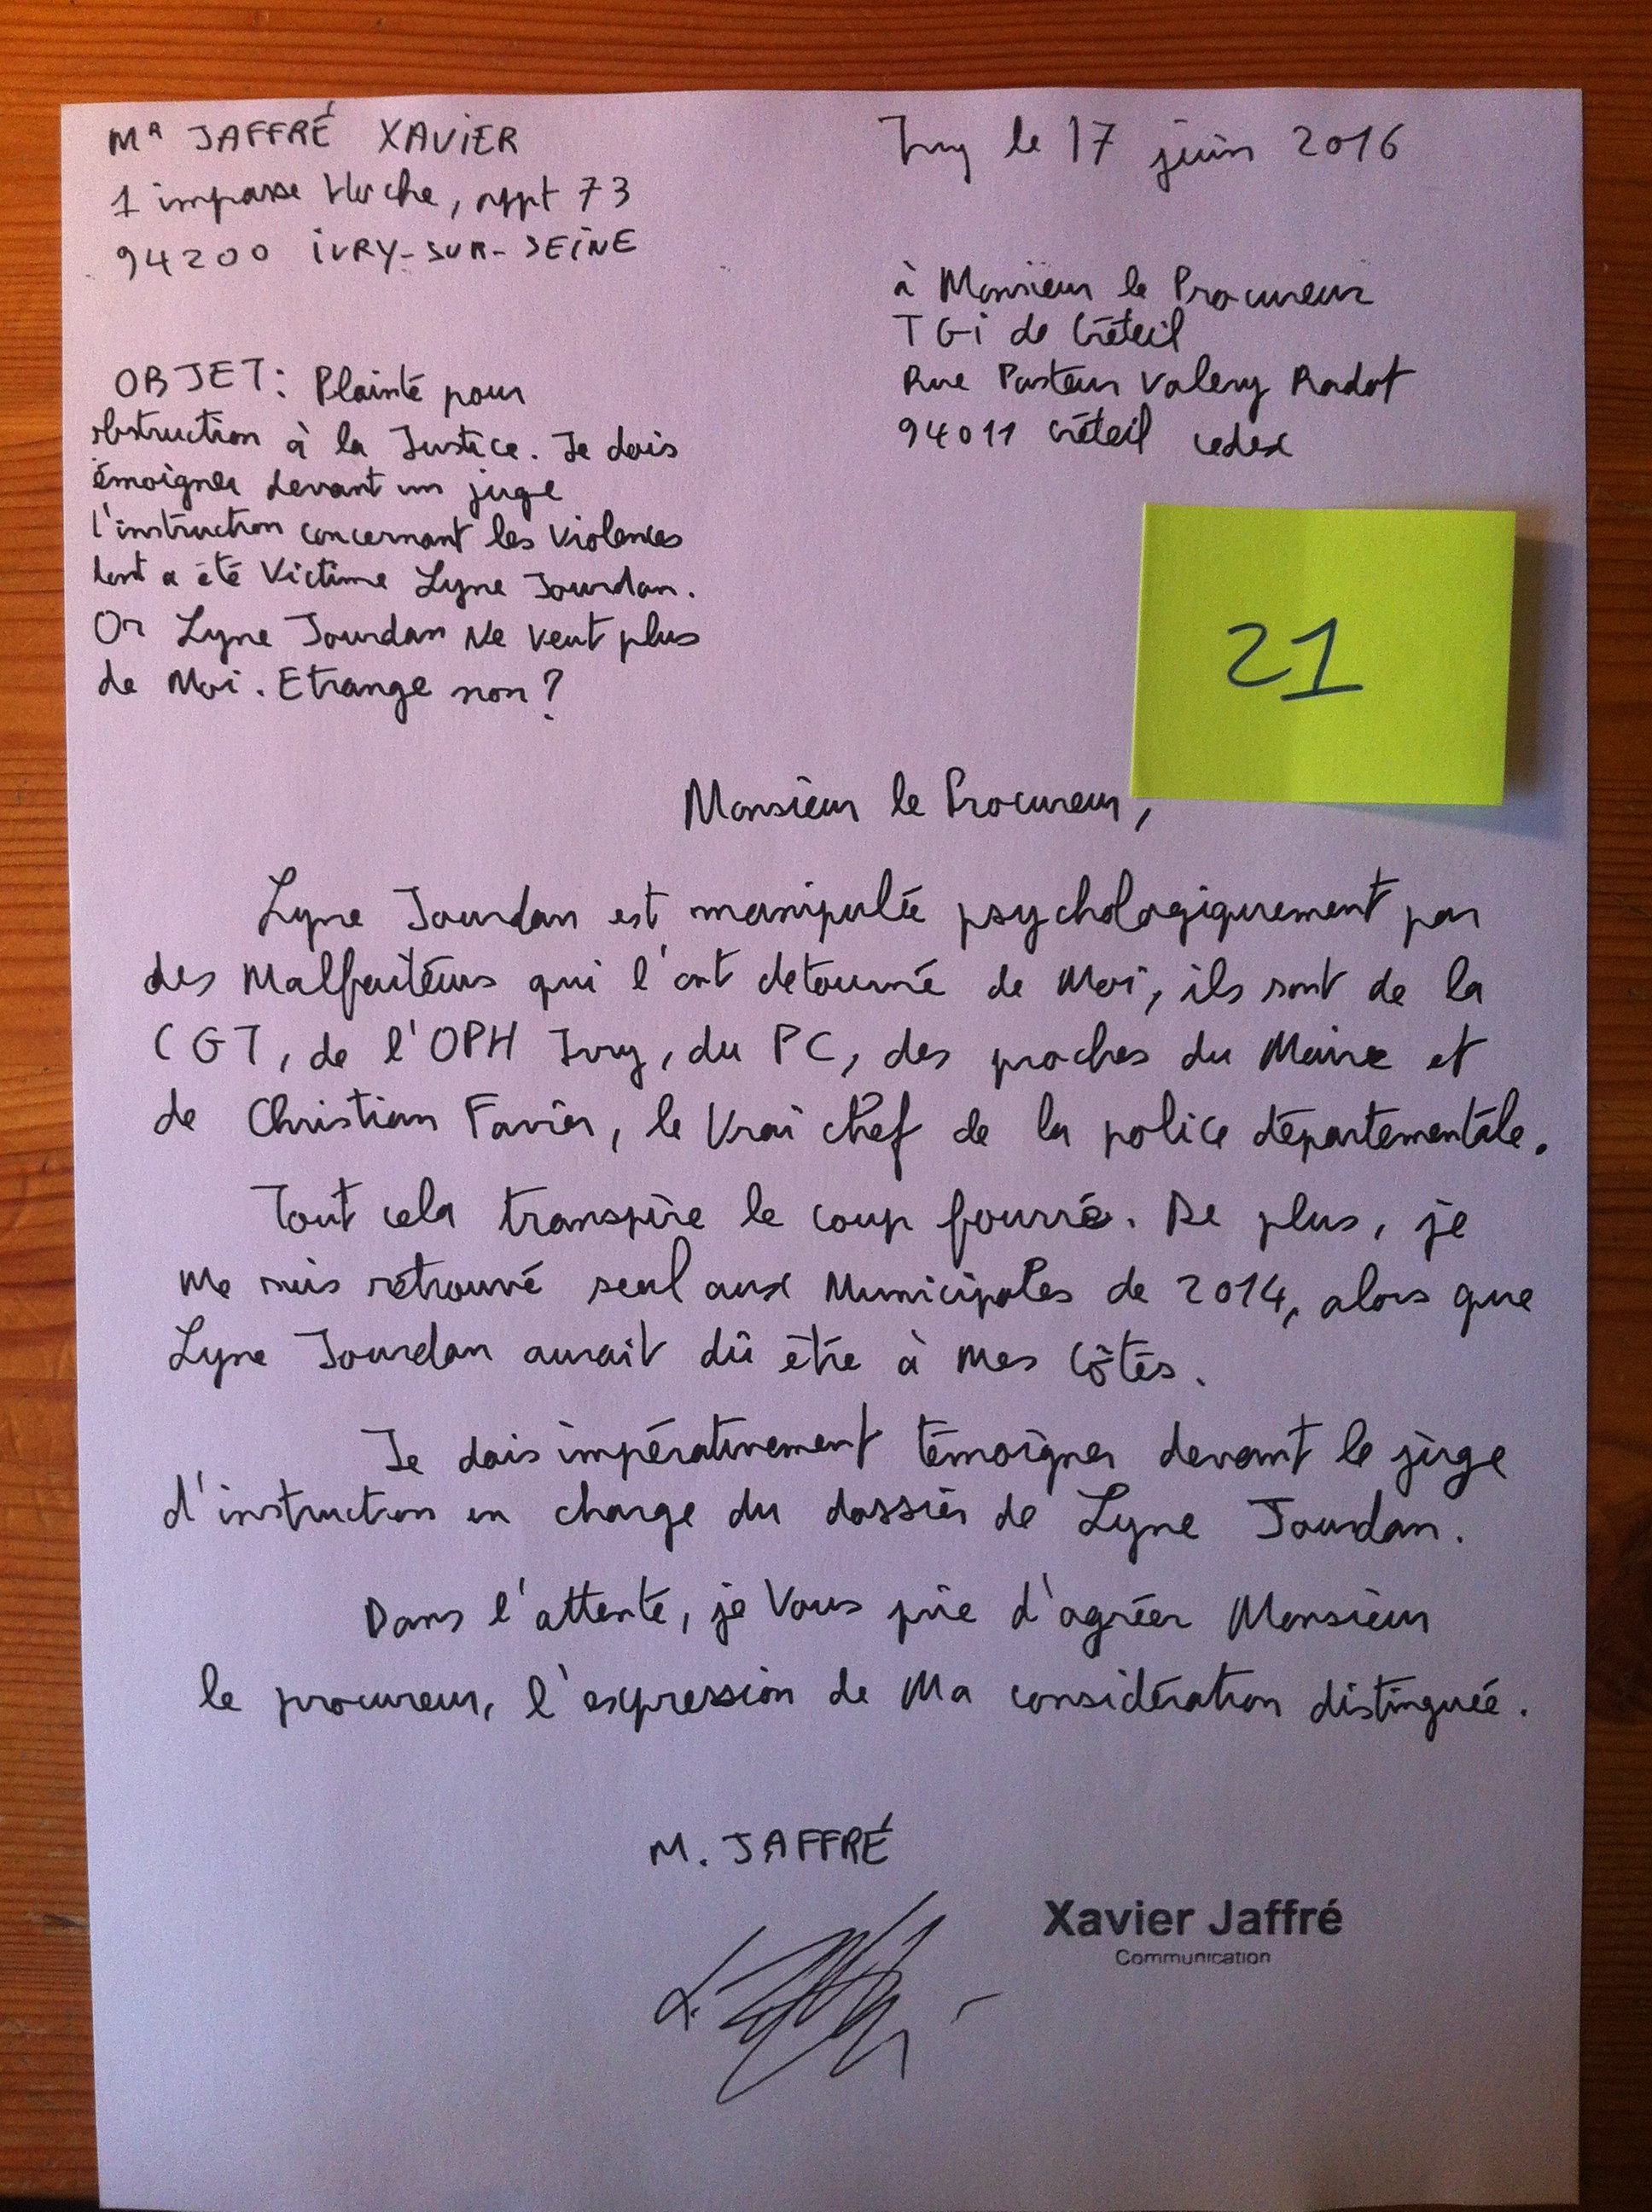 Mr JAFFRÉ XAVIER
1 impasse Hoche, appt 73
94200 IVRY-SUR-SEINE
Ivry le 17 juin 2016
à Monsieur le Procureur
TGI de Créteil
Rue Pasteur Valery Radot
94011 Créteil cedex
OBJET: Plainte pour
obstruction à la Justice. Je dois
émoigner devant un juge
l'instruction concernant les violences
dont a été Victime Lyne Jourdan.
Or Lyne Jourdan Ne veut plus
de Moi. Etrange non ?
21
Monsieur le Procureur,
Lyne Jourdan est manipulée psychologiquement par
des Malfaiteurs qui l'ont detourné de Moi, ils sont de la
CGT, de l'OPH Ivry, du PC, des proches du Maire et
de Christian Favier, le Vrai chef de la police départementale.
Tout cela transpire le coup fourré. De plus, je
Me suis retrouvé seul aux Municipales de 2014, alors que
Lyne Jourdan aurait dû être à Mes Côtés.
Je dois impérativement témoigner devant le juge
d'instruction en charge du dossier de Lyne Jourdan.
Dans l'attente, je Vous prie d'agréer Monsieur
le procureur, l'expression de Ma considération distinguée.
M. JAFFRÉ
Xavier Jaffré
Communication